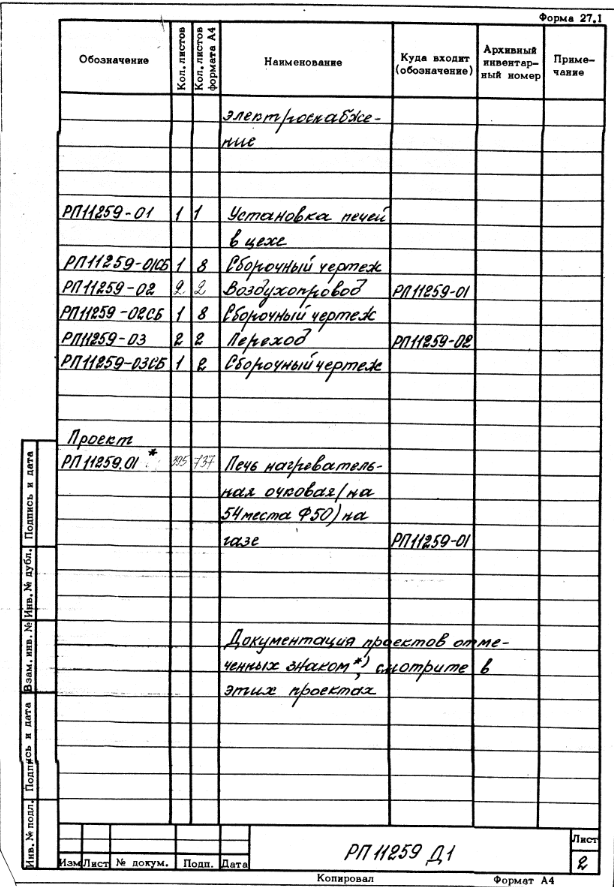 Форма 27.1
Обозначение Кол. листов Кол. листов формата А4 Наименование Куда входит (обозначение) Архивный инвентар- ный номер Приме- чание
электроснабже-
ние
РП11259-01 1 1 Установка печей
в цехе
РП11259-01СБ 1 8 Сборочный чертеж
РП11259-02 2 2 Воздухопровод РП11259-01
РП11259-02СБ 1 8 Сборочный чертеж
РП11259-03 2 2 Переход РП11259-02
РП11259-03СБ 1 2 Сборочный чертеж
Проект
РП11259.01 * 395 737 Печь нагреватель-
ная очковая (на
54 места Ф50) на
газе РП11259-01
Документация проектов отме-
ченных знаком *), смотрите в
этих проектах
Инв. № подл. Подпись и дата Взам. инв. № Инв. № дубл. Подпись и дата
РП 11259 Д1
Лист
2
Изм Лист № докум. Подп. Дата
Копировал Формат А4